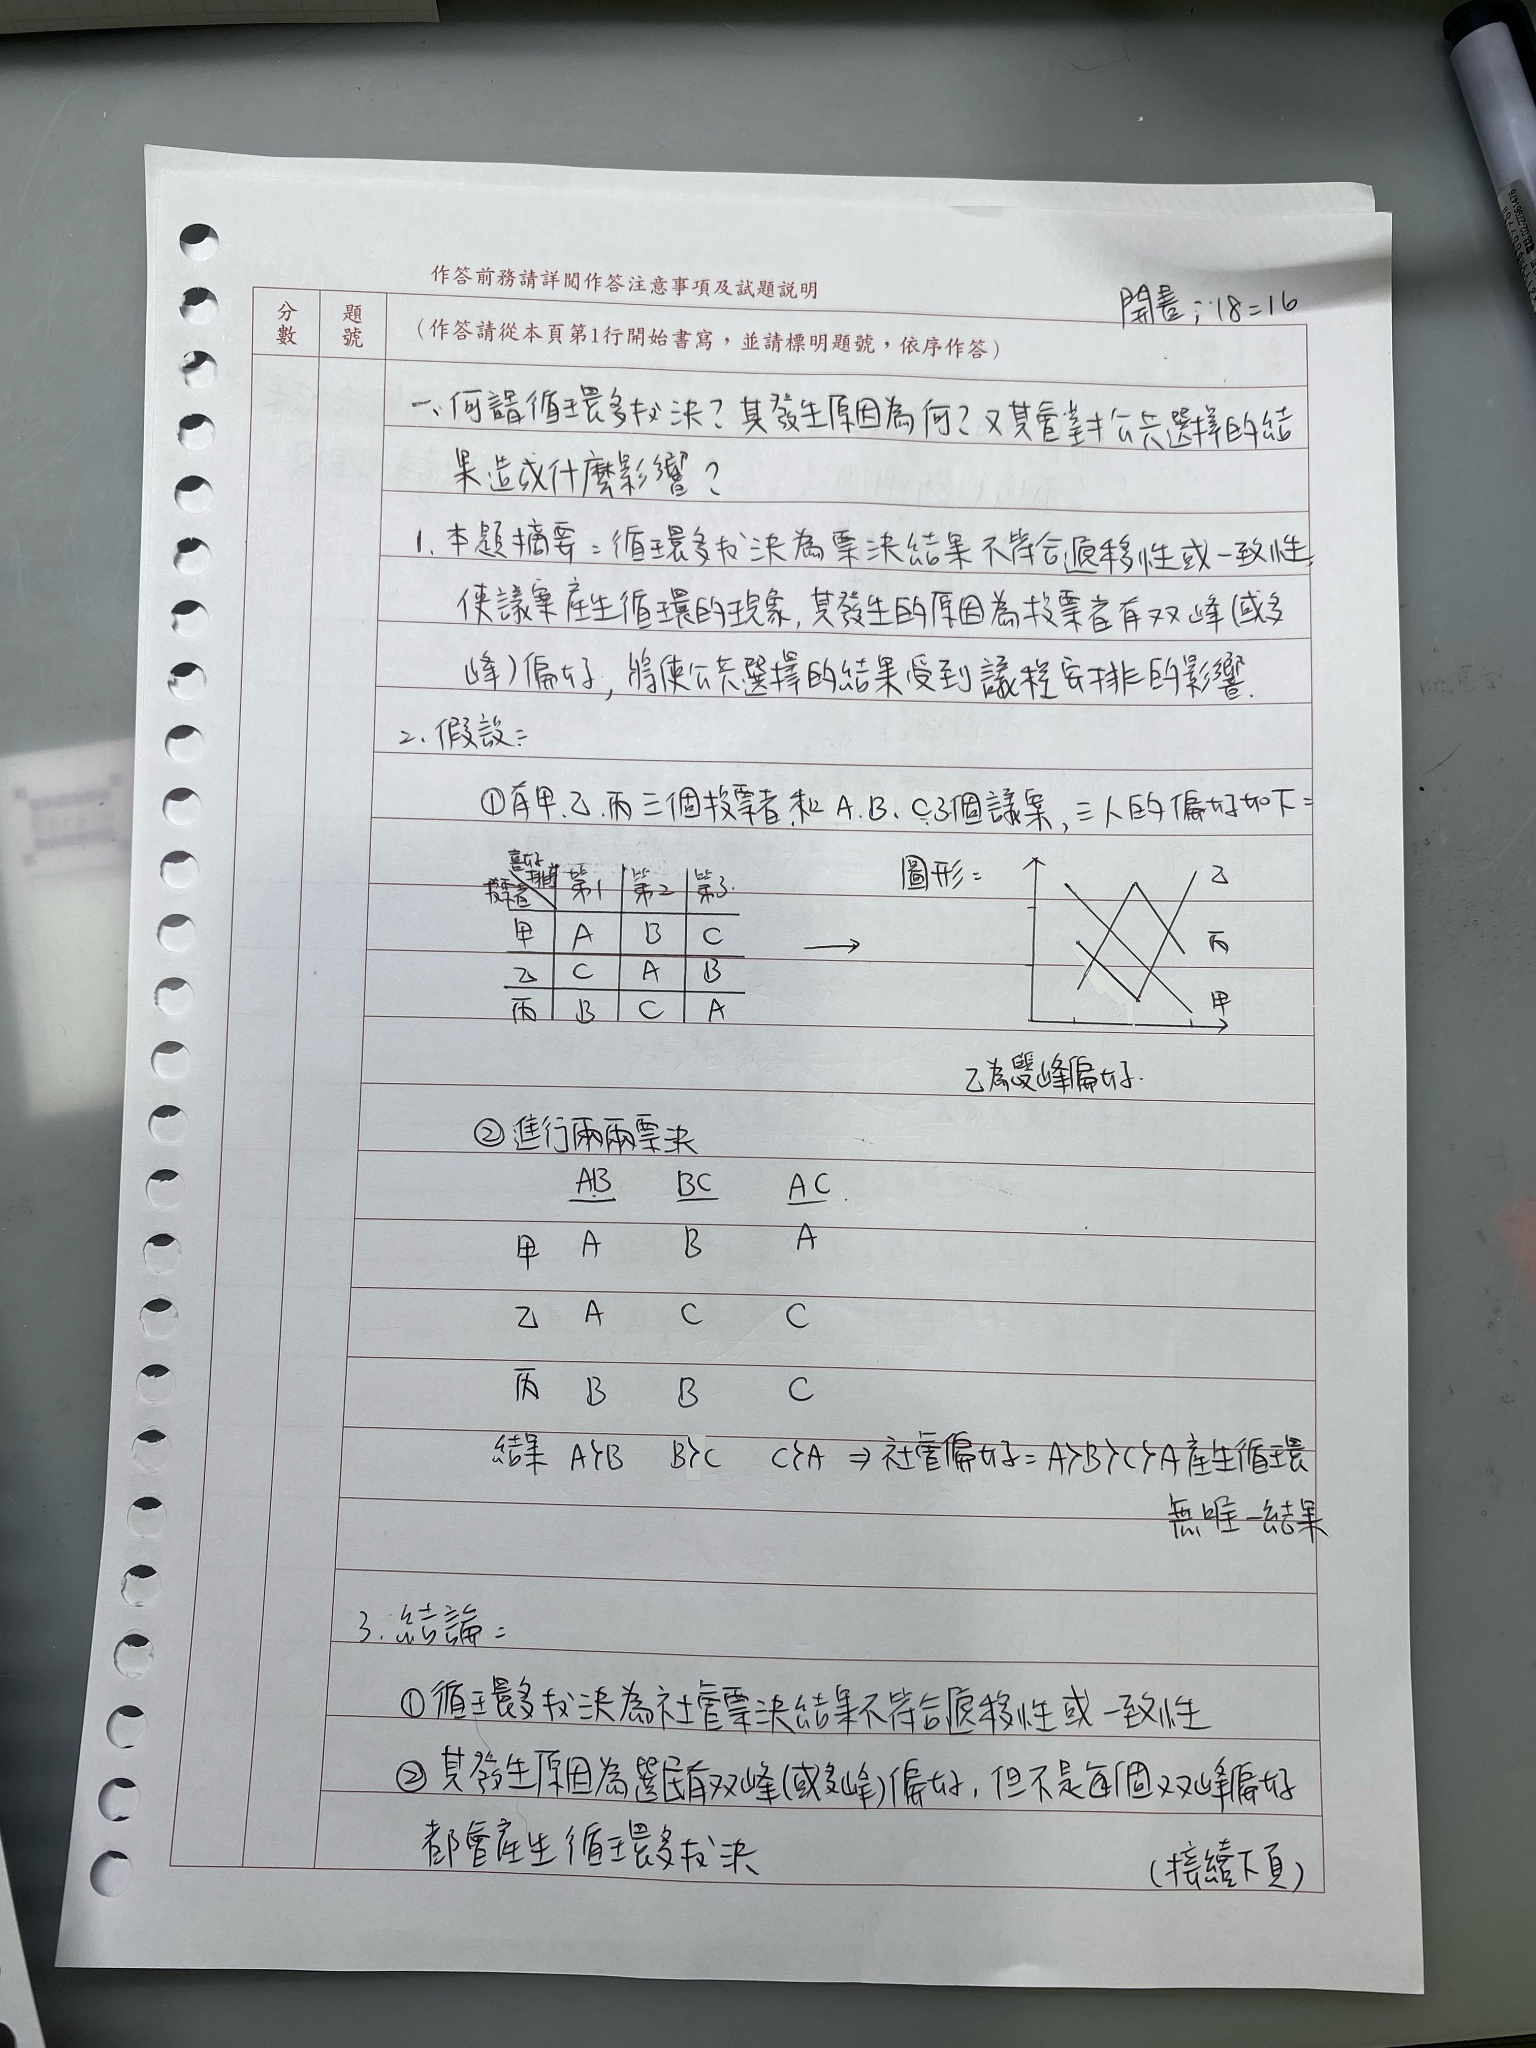 作答前務請詳閱作答注意事項及試題說明
18=16
分數
題號
(作答請從本頁第1行開始書寫，並請標明題號，依序作答)
一、何謂循環多数決？其發生原因為何？又其會對公共選擇的結
果造成什麼影響？
1. 本題摘要：循環多数決為票決結果不符合遞移性或一致性，
使議案產生循環的現象，其發生的原因為投票者有双峰(或多
峰)偏好，將使公共選擇的結果受到議程安排的影響.
2. 假設：
①有甲.乙.丙三個投票者和A.B.C3個議案，三人的偏好如下：
喜好排序 投票者 第1 第2 第3.
甲 A B C
乙 C A B
丙 B C A
→
圖形：
乙
丙
甲
乙為雙峰偏好.
②進行兩兩票決
AB BC AC.
甲 A B A
乙 A C C
丙 B B C
結果 A≻B B≻C C≻A ⇒ 社會偏好：A≻B≻C≻A 產生循環
無唯一結果
3. 結論：
①循環多数決為社會票決結果不符合遞移性或一致性
②其發生原因為選民有双峰(或多峰)偏好，但不是每個双峰偏好
都會產生循環多数決
(接續下頁)